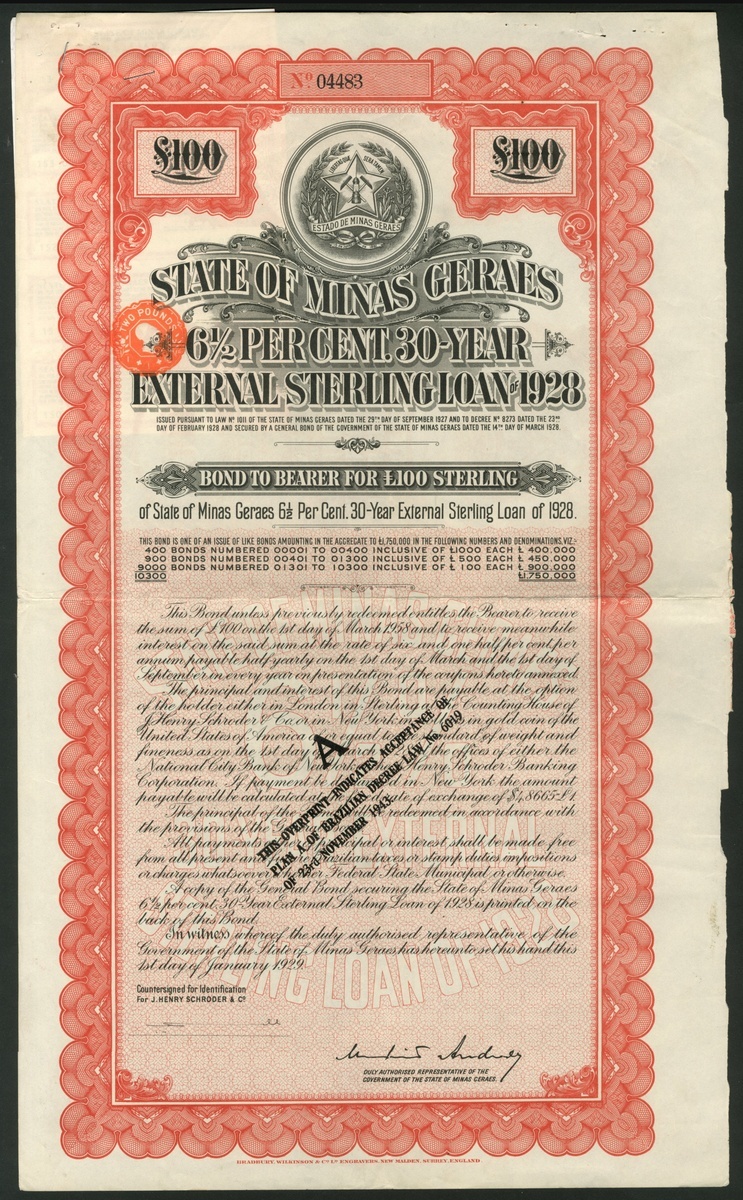 Nº 04483
£100
£100
LIBERTAS QUÆ SERA TAMEN
ESTADO DE MINAS GERAES
STATE OF MINAS GERAES
TWO POUND
6½ PER CENT. 30-YEAR
EXTERNAL STERLING LOAN OF 1928
ISSUED PURSUANT TO LAW Nº 1011 OF THE STATE OF MINAS GERAES DATED THE 29TH DAY OF SEPTEMBER 1927 AND TO DECREE Nº 8273 DATED THE 23RD
DAY OF FEBRUARY 1928 AND SECURED BY A GENERAL BOND OF THE GOVERNMENT OF THE STATE OF MINAS GERAES DATED THE 14TH DAY OF MARCH 1928.
BOND TO BEARER FOR £100 STERLING
of State of Minas Geraes 6½ Per Cent. 30-Year External Sterling Loan of 1928.
THIS BOND IS ONE OF AN ISSUE OF LIKE BONDS AMOUNTING IN THE AGGREGATE TO £1,750,000 IN THE FOLLOWING NUMBERS AND DENOMINATIONS, VIZ:-
400 BONDS NUMBERED 00001 TO 00400 INCLUSIVE OF £1000 EACH £ 400.000
900 BONDS NUMBERED 00401 TO 01300 INCLUSIVE OF £ 500 EACH £ 450.000
9000 BONDS NUMBERED 01301 TO 10300 INCLUSIVE OF £ 100 EACH £ 900.000
10300 £1.750.000
This Bond unless previously redeemed entitles the Bearer to receive
the sum of £100 on the 1st day of March 1958 and to receive meanwhile
interest on the said sum at the rate of six and one half per cent per
annum payable half-yearly on the 1st day of March and the 1st day of
September in every year on presentation of the coupons hereto annexed.
The principal and interest of this Bond are payable at the option
of the holder either in London in Sterling at the Counting House of
J. Henry Schroder & Co. or in New York in in gold coin of the
United States of America equal to standard of weight and
fineness as on the 1st day March the offices of either the
National City Bank of New York Henry Schroder Banking
Corporation. If payment be in New York the amount
payable will be calculated at rate of exchange of $4,8665=£1.
The principal of the be redeemed in accordance with
the provisions of the General
All payments principal or interest shall be made free
from all present and Brazilian taxes or stamp duties impositions
or charges whatsoever Federal State Municipal or otherwise.
A copy of the General Bond securing the State of Minas Geraes
6½ per cent 30-Year External Sterling Loan of 1928 is printed on the
back of this Bond.
In witness whereof the duly authorised representative of the
Government of the State of Minas Geraes has hereunto set his hand this
1st day of January 1929.
A
THIS OVERPRINT INDICATES ACCEPTANCE OF
PLAN A OF BRAZILIAN DECREE LAW No. 6019
OF 23rd NOVEMBER 1943.
Countersigned for Identification
For J. HENRY SCHRODER & Cº
DULY AUTHORISED REPRESENTATIVE OF THE
GOVERNMENT OF THE STATE OF MINAS GERAES.
BRADBURY, WILKINSON & Cº Lᴰ ENGRAVERS, NEW MALDEN, SURREY, ENGLAND